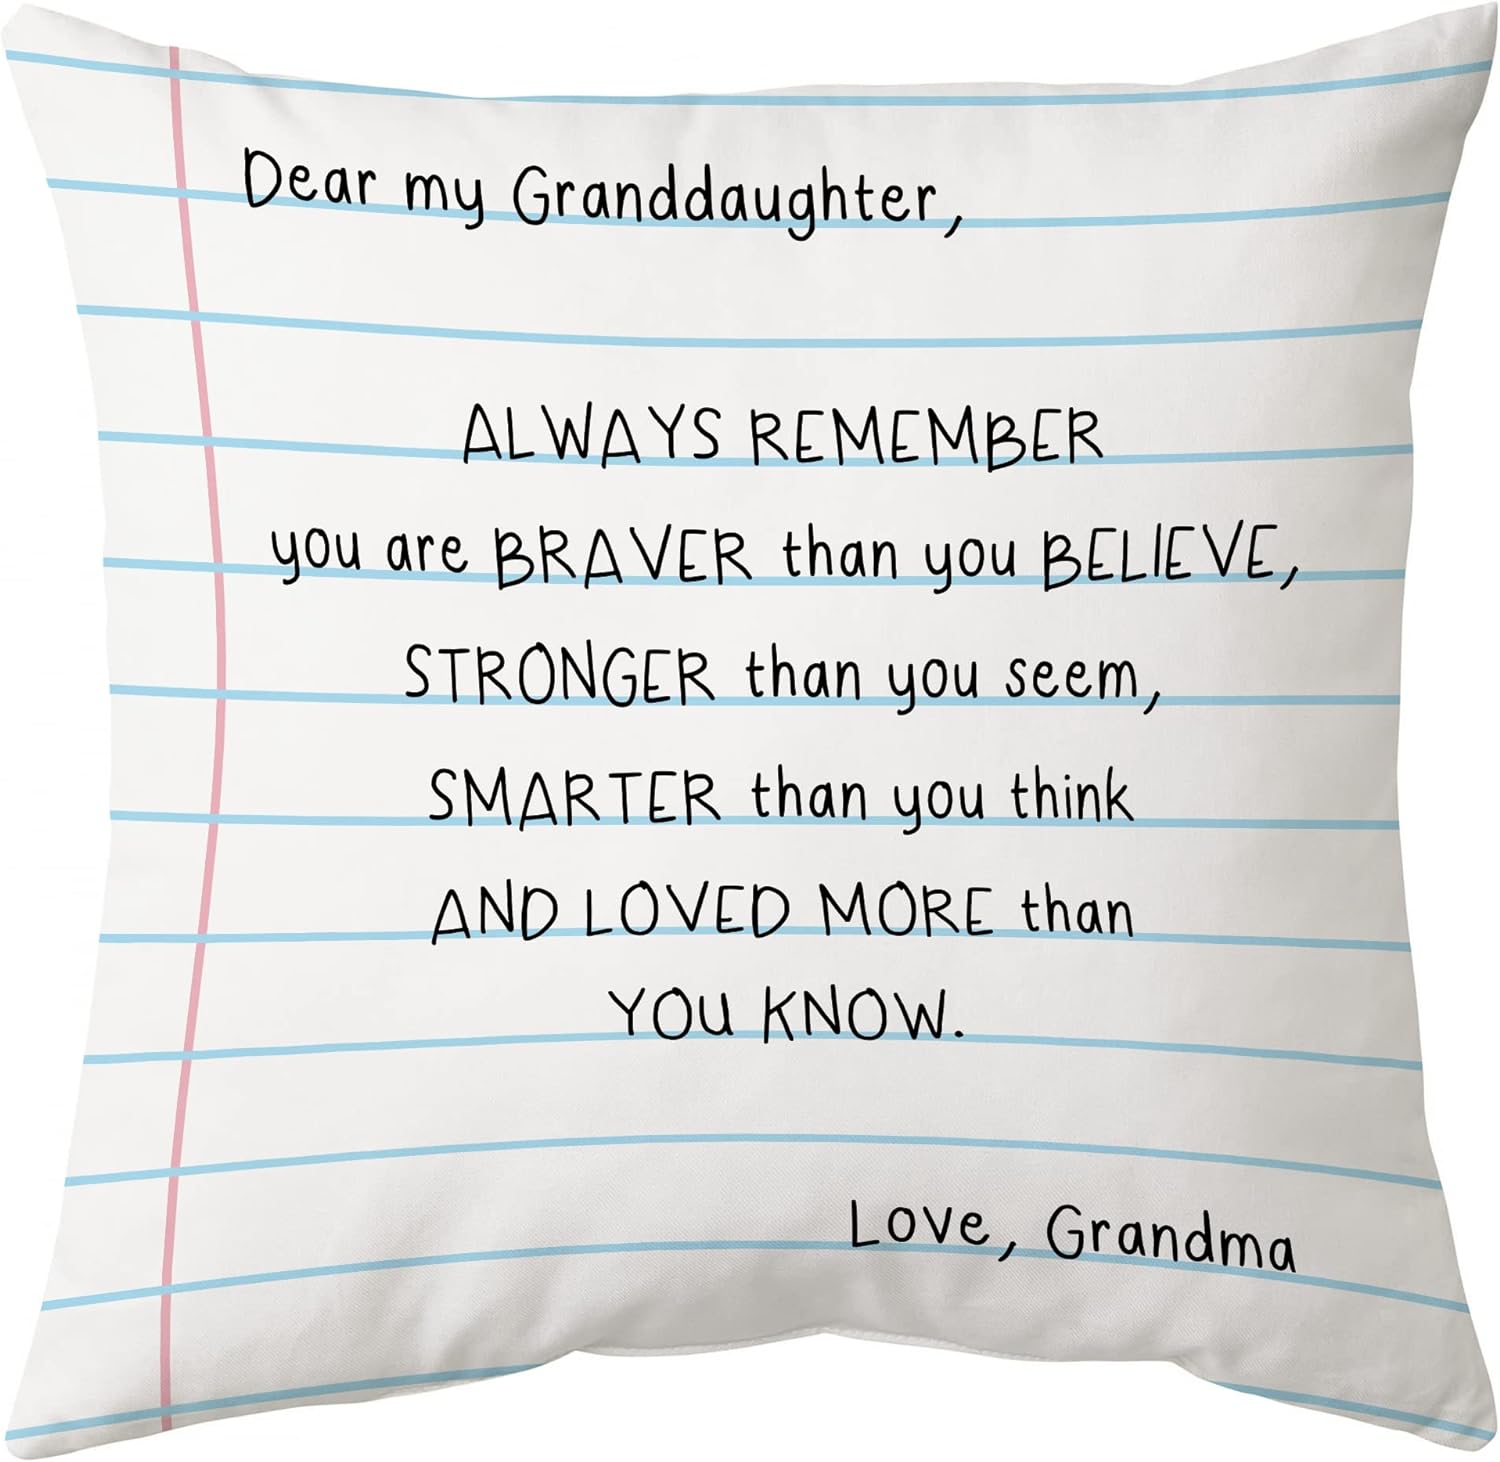 Dear my Granddaughter,
ALWAYS REMEMBER
you are BRAVER than you BELIEVE,
STRONGER than you seem,
SMARTER than you think
AND LOVED MORE than
YOU KNOW.
Love, Grandma